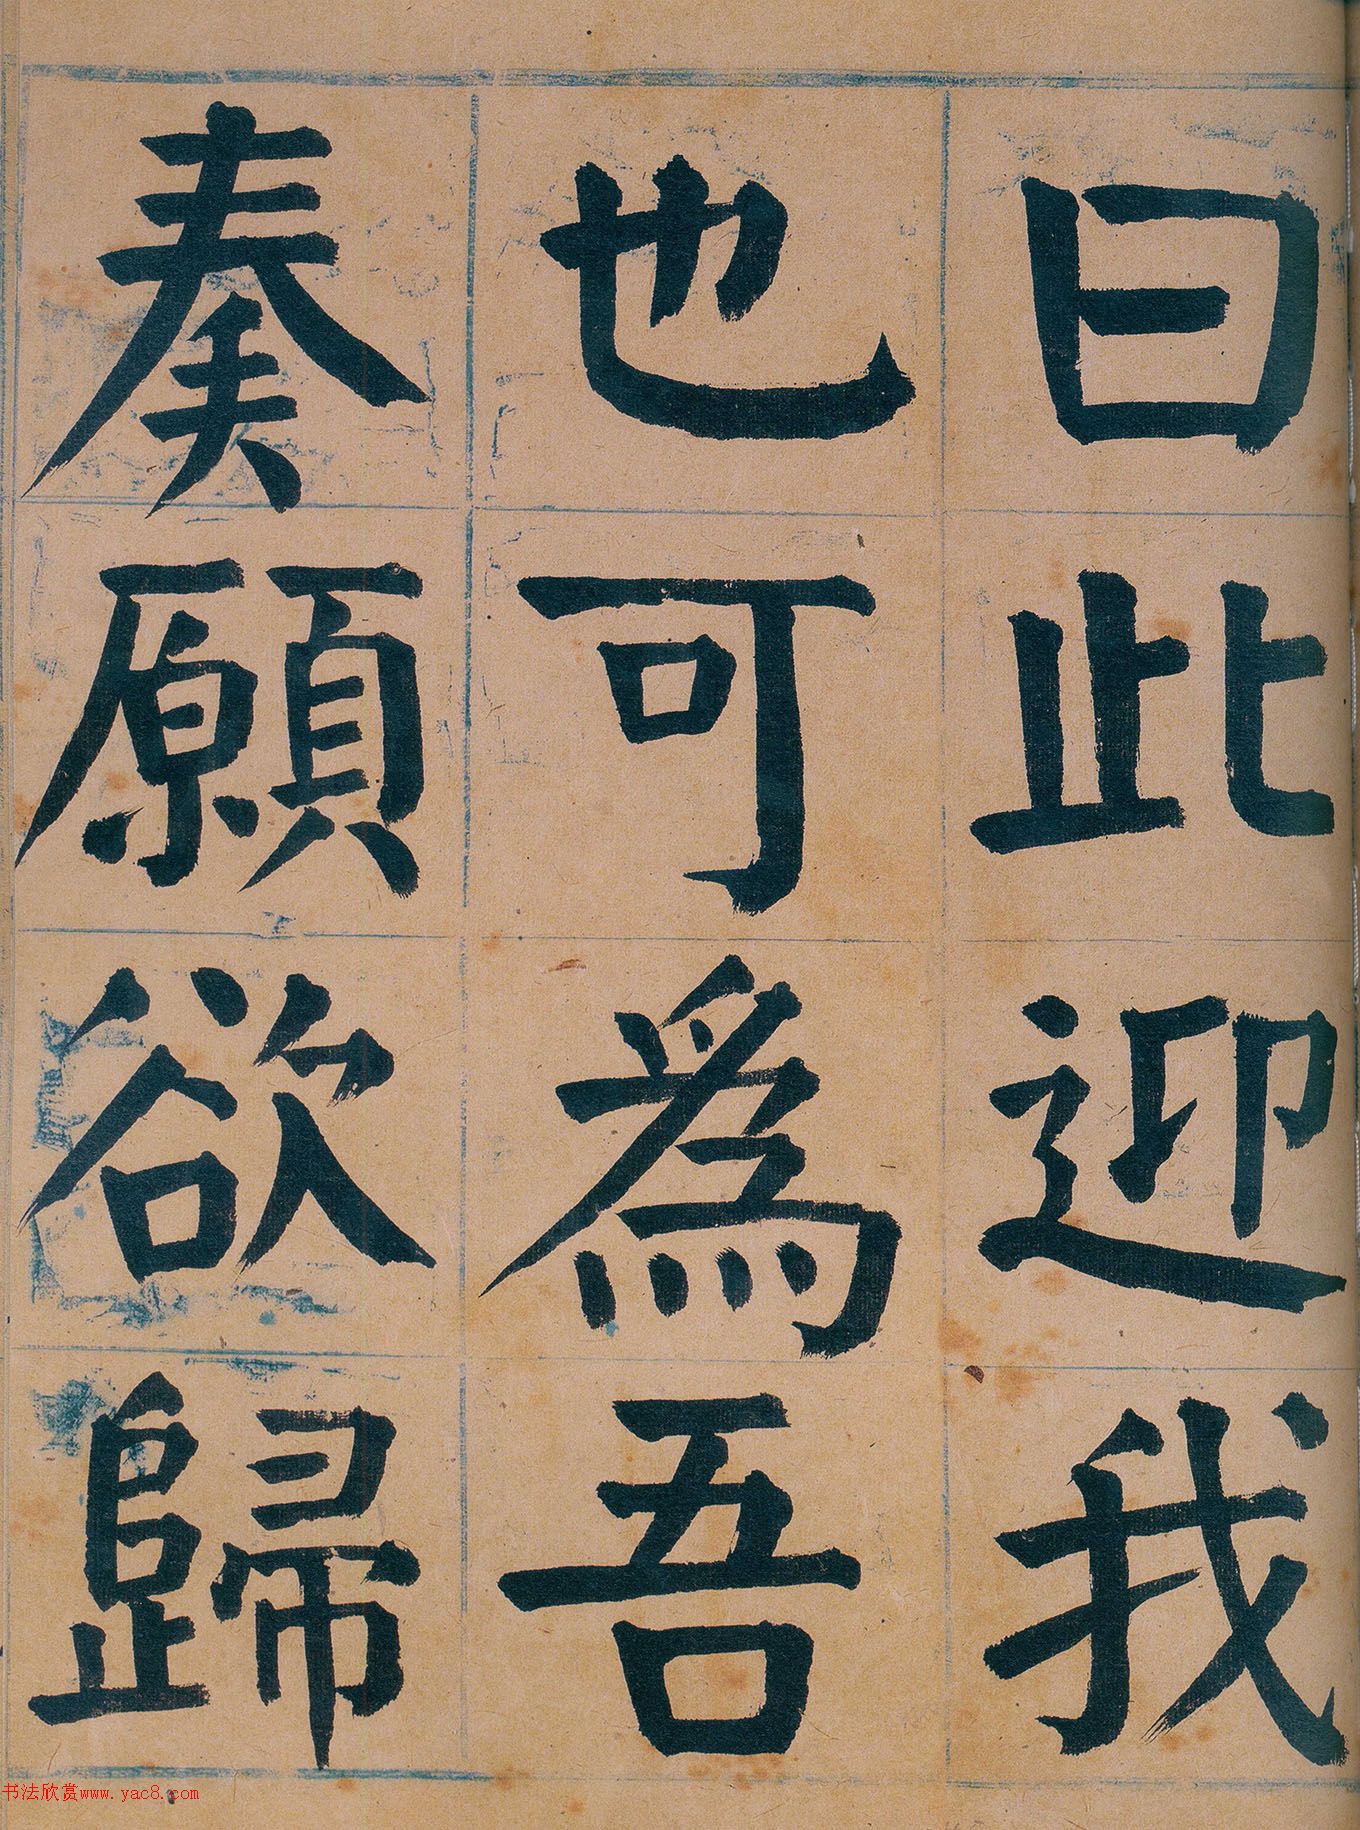 曰此迎我
也可為吾
奏願欲歸
书法欣赏www.yac8.com